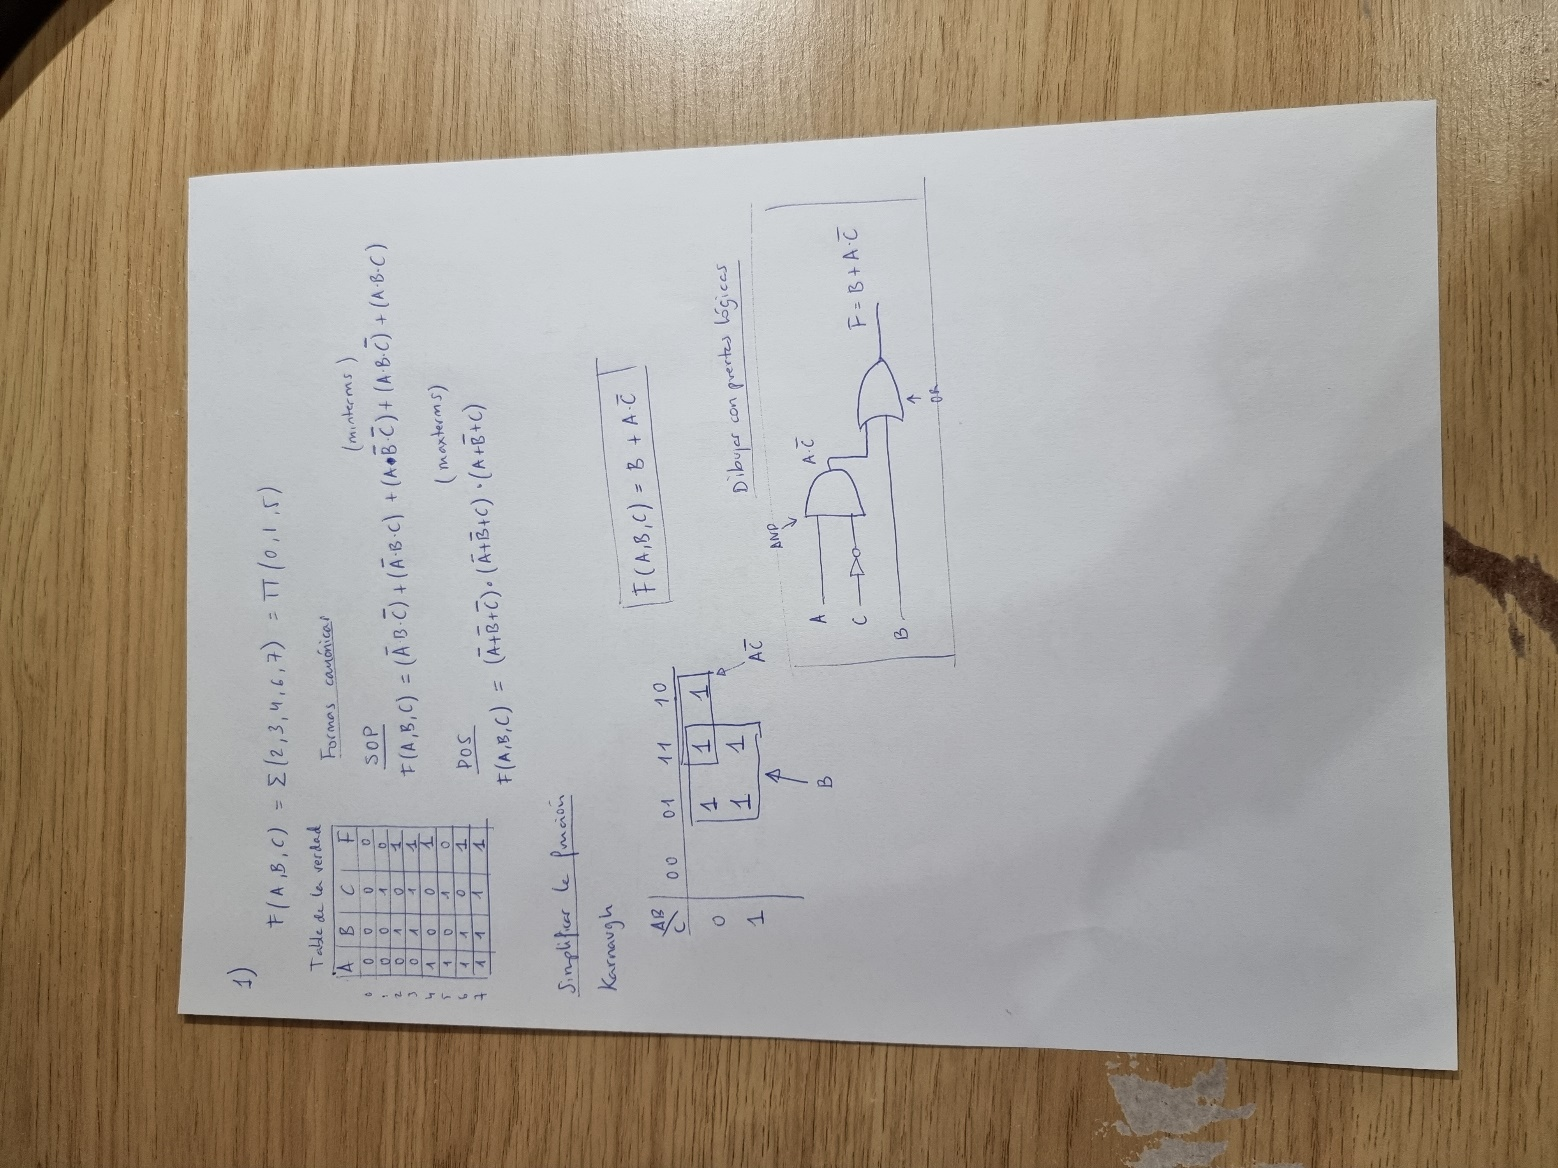 1)
F(A,B,C) = Σ(2,3,4,6,7) = Π(0,1,5)
Table de la verdad
A B C F
0 0 0 0 0
1 0 0 1 0
2 0 1 0 1
3 0 1 1 1
4 1 0 0 1
5 1 0 1 0
6 1 1 0 1
7 1 1 1 1
Formas canónicas
SOP (minterms)
F(A,B,C) = (A̅·B·C̅) + (A̅·B·C) + (A·B̅·C̅) + (A·B·C̅) + (A·B·C)
POS (maxterms)
F(A,B,C) = (A̅+B̅+C̅)·(A̅+B̅+C)·(A+B̅+C)
Simplificar le función
Karnaugh
AB 00 01 11 10
C
0 1 1 1
1 1 1
AC̅
B
F(A,B,C) = B + A·C̅
Dibujar con puertas lógicas
AND
A
A·C̅
C
B
F = B + A·C̅
OR